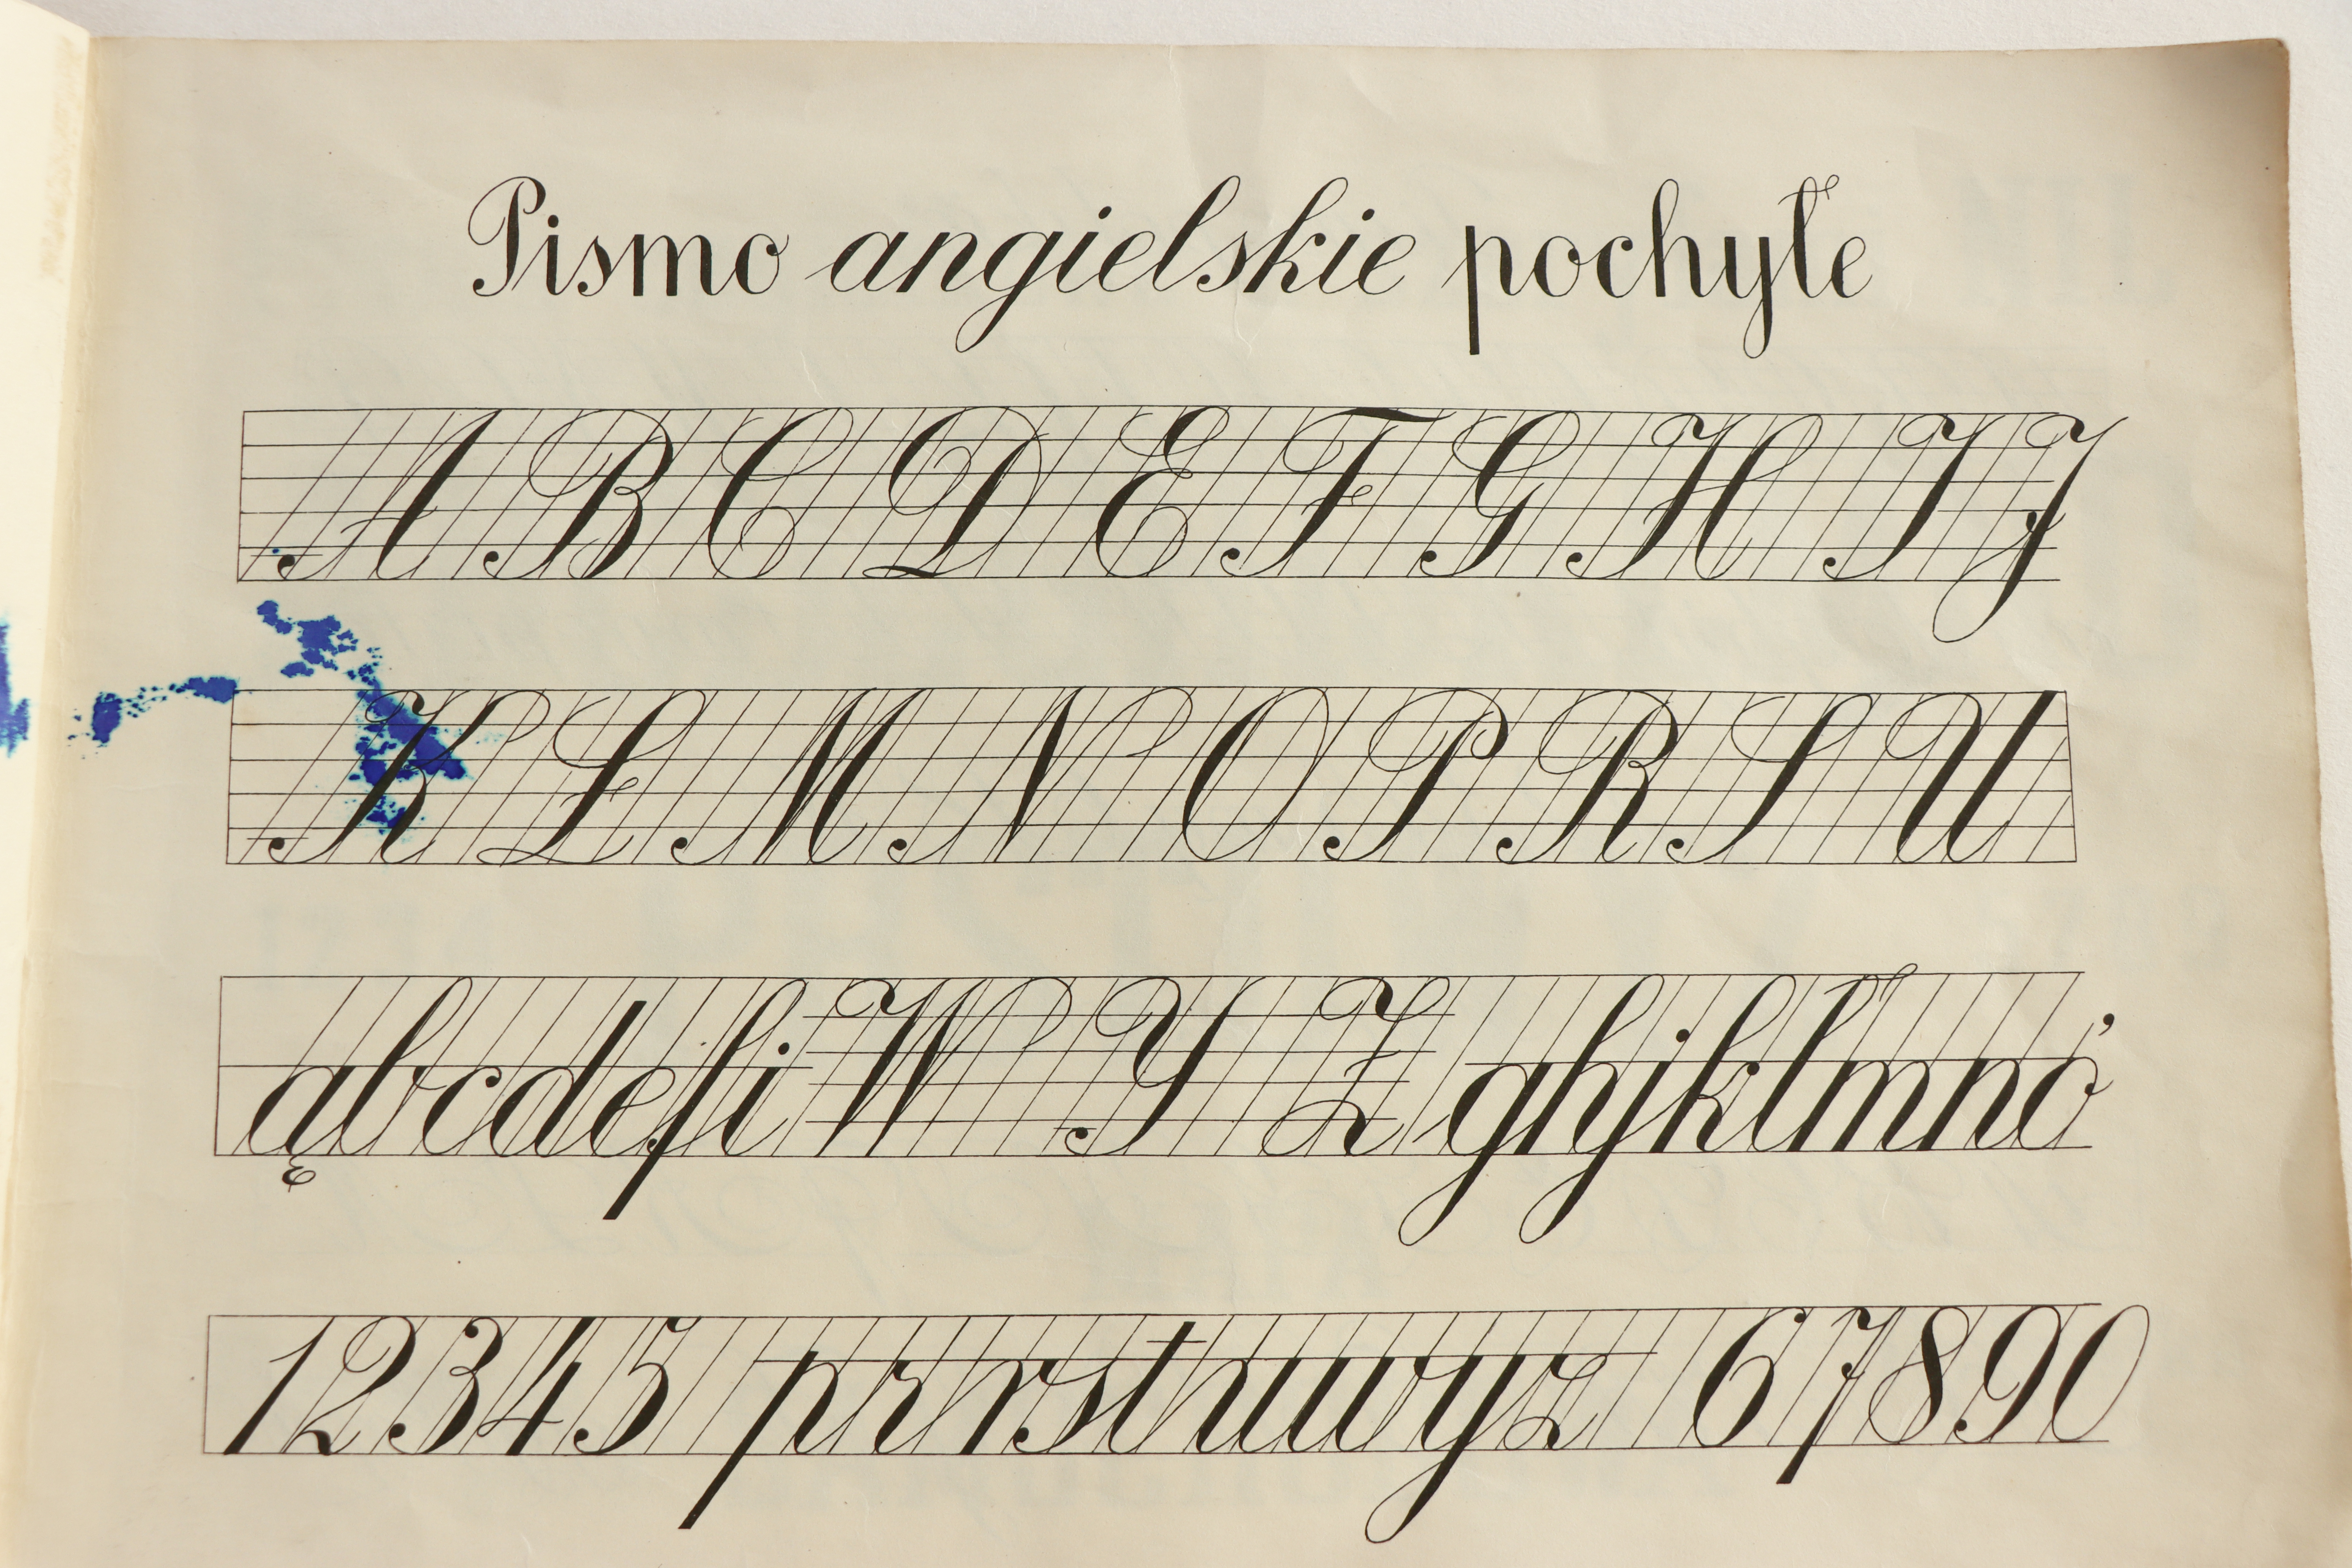 Pismo angielskie pochyłe
A B C D E F G H I J
K Ł M N O P R S U
ąbcdefi W Y Z ghjkłmnó
12345 prrstuwyz 67890